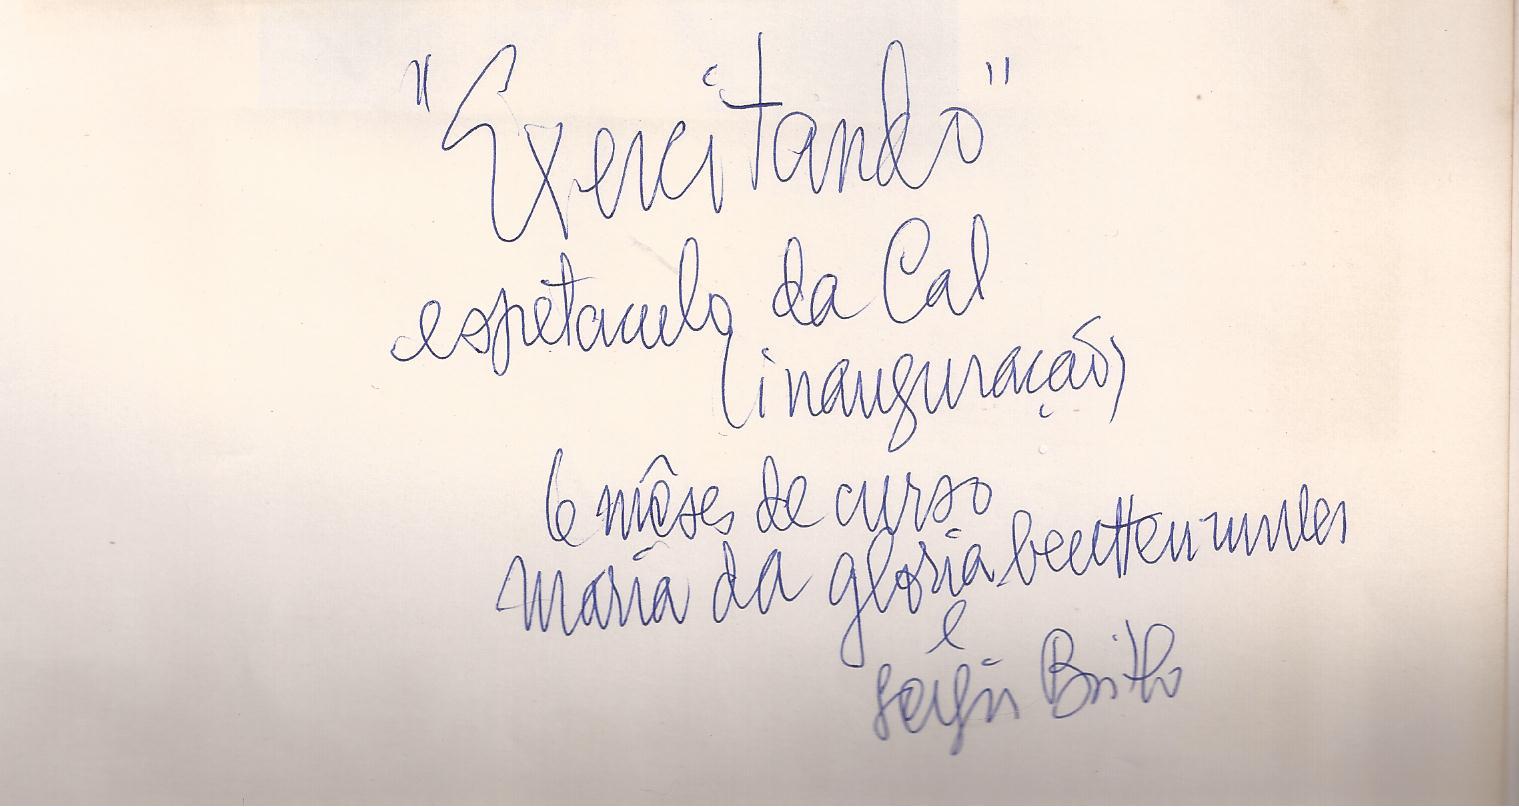 "Exercitando"
espetaculo da Cal
(inauguração)
6 mêses de curso
Maria da gloria beuttenmuller
e
Sergio Britto